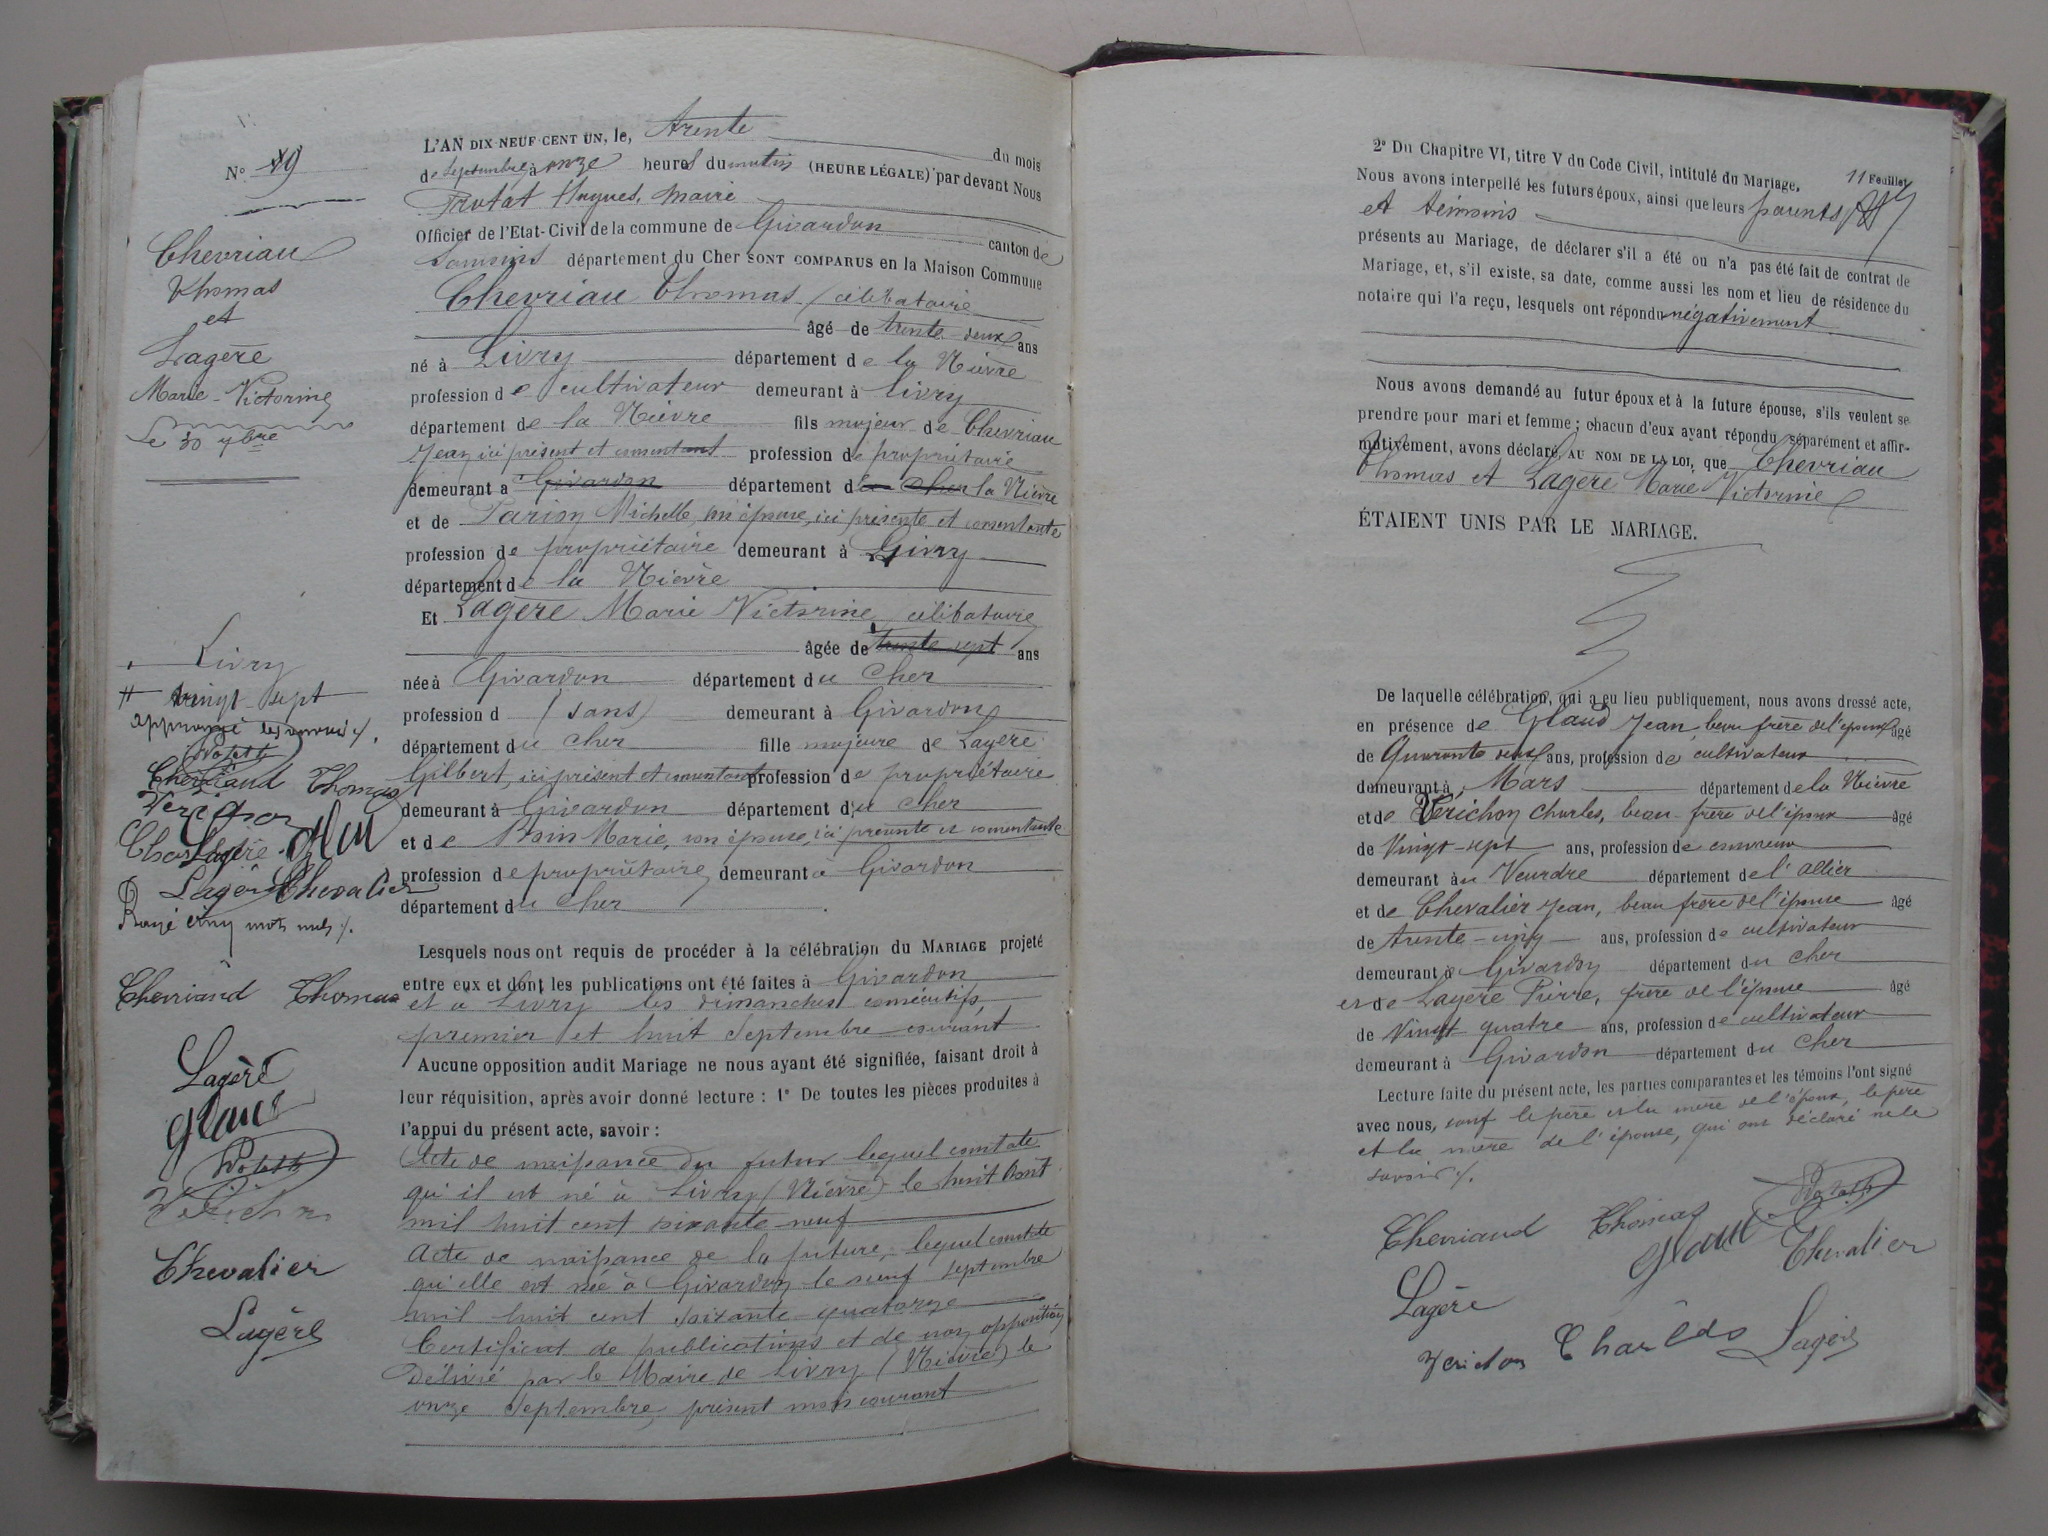 N° 19
Chevriau
Thomas
et
Lagère
Marie-Victorine
Le 30 7bre
Livry
vingt sept
Chevriaud Thomas
Lagère
Lagère Chevalier
Rayé cinq mots nuls ./.
Chevriaud Thomas
Lagère
Glaud
Chevalier
Lagère
L'AN DIX-NEUF CENT UN, le, trente du mois
de Septembre à onze heures du matin (HEURE LÉGALE) par devant Nous
Protat Hugues, maire
Officier de l'Etat-Civil de la commune de Givardon canton de
Sancoins département du Cher SONT COMPARUS en la Maison Commune
Chevriau Thomas, célibataire
âgé de trente-deux ans
né à Livry département de la Nièvre
profession de cultivateur demeurant à Livry
département de la Nièvre fils majeur de Chevriau
Jean, ici présent et consentant profession de propriétaire
demeurant à Givardon département du Cher la Nièvre
et de Parion Michelle, son épouse, ici présente et consentante
profession de propriétaire demeurant à Livry
département de la Nièvre
Et Lagère Marie Victorine, célibataire
âgée de trente-sept ans
née à Givardon département du Cher
profession d (sans) demeurant à Givardon
département du Cher fille majeure de Lagère
Gilbert, ici présent et consentant profession de propriétaire
demeurant à Givardon département du Cher
et de Marie, son épouse, ici présente et consentante
profession de propriétaire demeurant à Givardon
département du Cher
Lesquels nous ont requis de procéder à la célébration du MARIAGE projeté
entre eux et dont les publications ont été faites à Givardon
et à Livry les dimanches consécutifs,
premier et huit Septembre courant
Aucune opposition audit Mariage ne nous ayant été signifiée, faisant droit à
leur réquisition, après avoir donné lecture : 1° De toutes les pièces produites à
l'appui du présent acte, savoir :
Acte de naissance du futur lequel constate
qu'il est né à Livry (Nièvre) le huit Août
mil huit cent soixante-neuf
Acte de naissance de la future, lequel constate
qu'elle est née à Givardon le neuf septembre
mil huit cent soixante-quatorze
Certificat de publications et de non opposition
Délivré par le Maire de Livry (Nièvre) le
onze Septembre, présent mois courant
11 Feuillet
2° Du Chapitre VI, titre V du Code Civil, intitulé du Mariage.
Nous avons interpellé les futurs époux, ainsi que leurs parents
et témoins
présents au Mariage, de déclarer s'il a été ou n'a pas été fait de contrat de
Mariage, et, s'il existe, sa date, comme aussi les nom et lieu de résidence du
notaire qui l'a reçu, lesquels ont répondu négativement
Nous avons demandé au futur époux et à la future épouse, s'ils veulent se
prendre pour mari et femme ; chacun d'eux ayant répondu séparément et affir-
mativement, avons déclaré, AU NOM DE LA LOI, que Chevriau
Thomas et Lagère Marie Victorine
ÉTAIENT UNIS PAR LE MARIAGE.
De laquelle célébration, qui a eu lieu publiquement, nous avons dressé acte,
en présence de Glaud Jean, beau frère de l'époux âgé
de Quarante deux ans, profession de cultivateur
demeurant à Mars département de la Nièvre
et de Verichon Charles, beau-frère de l'époux âgé
de Vingt-sept ans, profession de couvreur
demeurant au Veurdre département de l'Allier
et de Chevalier Jean, beau frère de l'épouse âgé
de trente-cinq ans, profession de cultivateur
demeurant à Givardon département du Cher
et de Lagère Pierre, frère de l'épouse âgé
de Vingt quatre ans, profession de cultivateur
demeurant à Givardon département du Cher
Lecture faite du présent acte, les parties comparantes et les témoins l'ont signé
avec nous, sauf le père et la mère de l'époux, le père
et la mère de l'épouse, qui ont déclaré ne le
savoir ./.
Chevriaud Thomas
Glaud Chevalier
Lagère
Verichon Charles Lagère